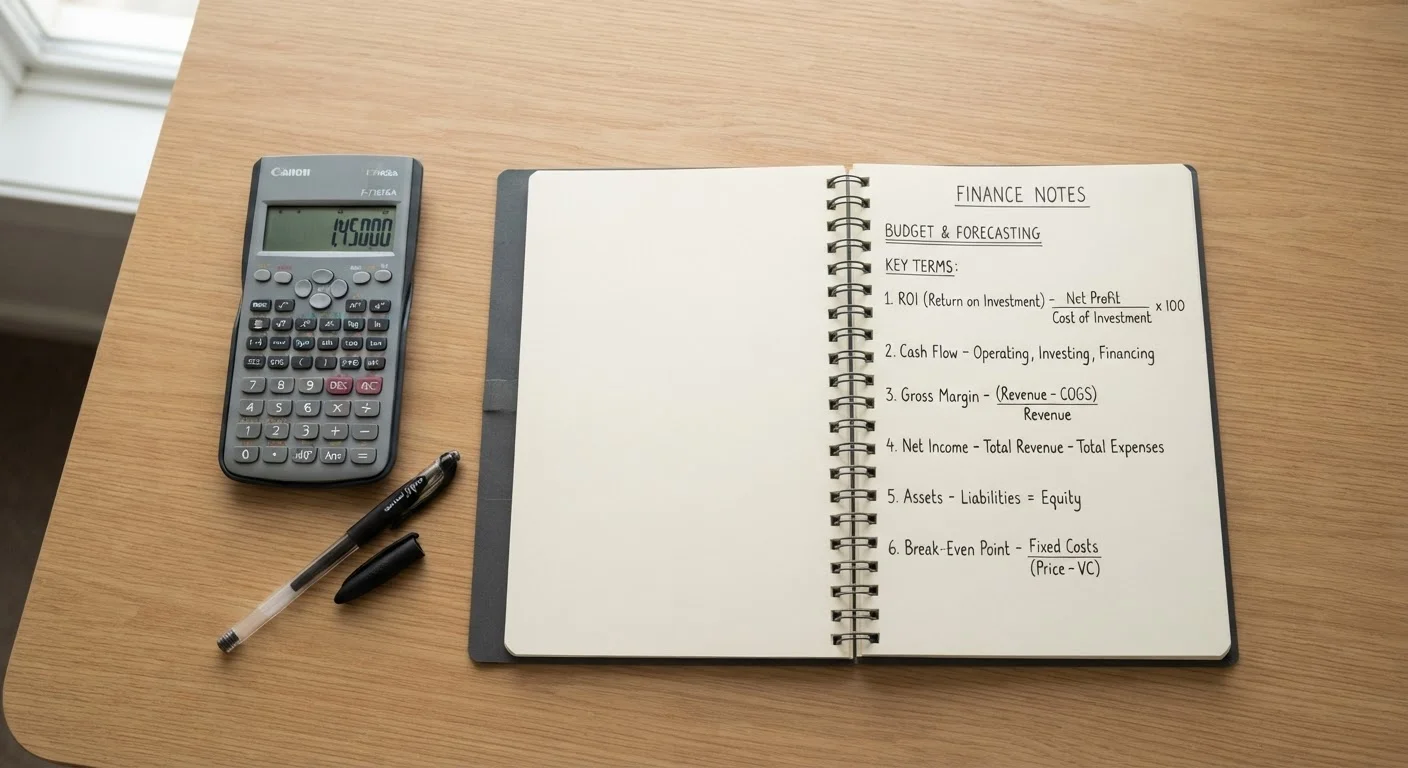 Canon
1,45000
7 8 9 AC
4 5 6 × ÷
1 2 3 + −
0 . Ans =
FINANCE NOTES
BUDGET & FORECASTING
KEY TERMS:
1. ROI (Return on Investment) - Net Profit
Cost of Investment x 100
2. Cash Flow - Operating, Investing, Financing
3. Gross Margin - (Revenue - COGS)
Revenue
4. Net Income - Total Revenue - Total Expenses
5. Assets - Liabilities = Equity
6. Break-Even Point - Fixed Costs
(Price - VC)